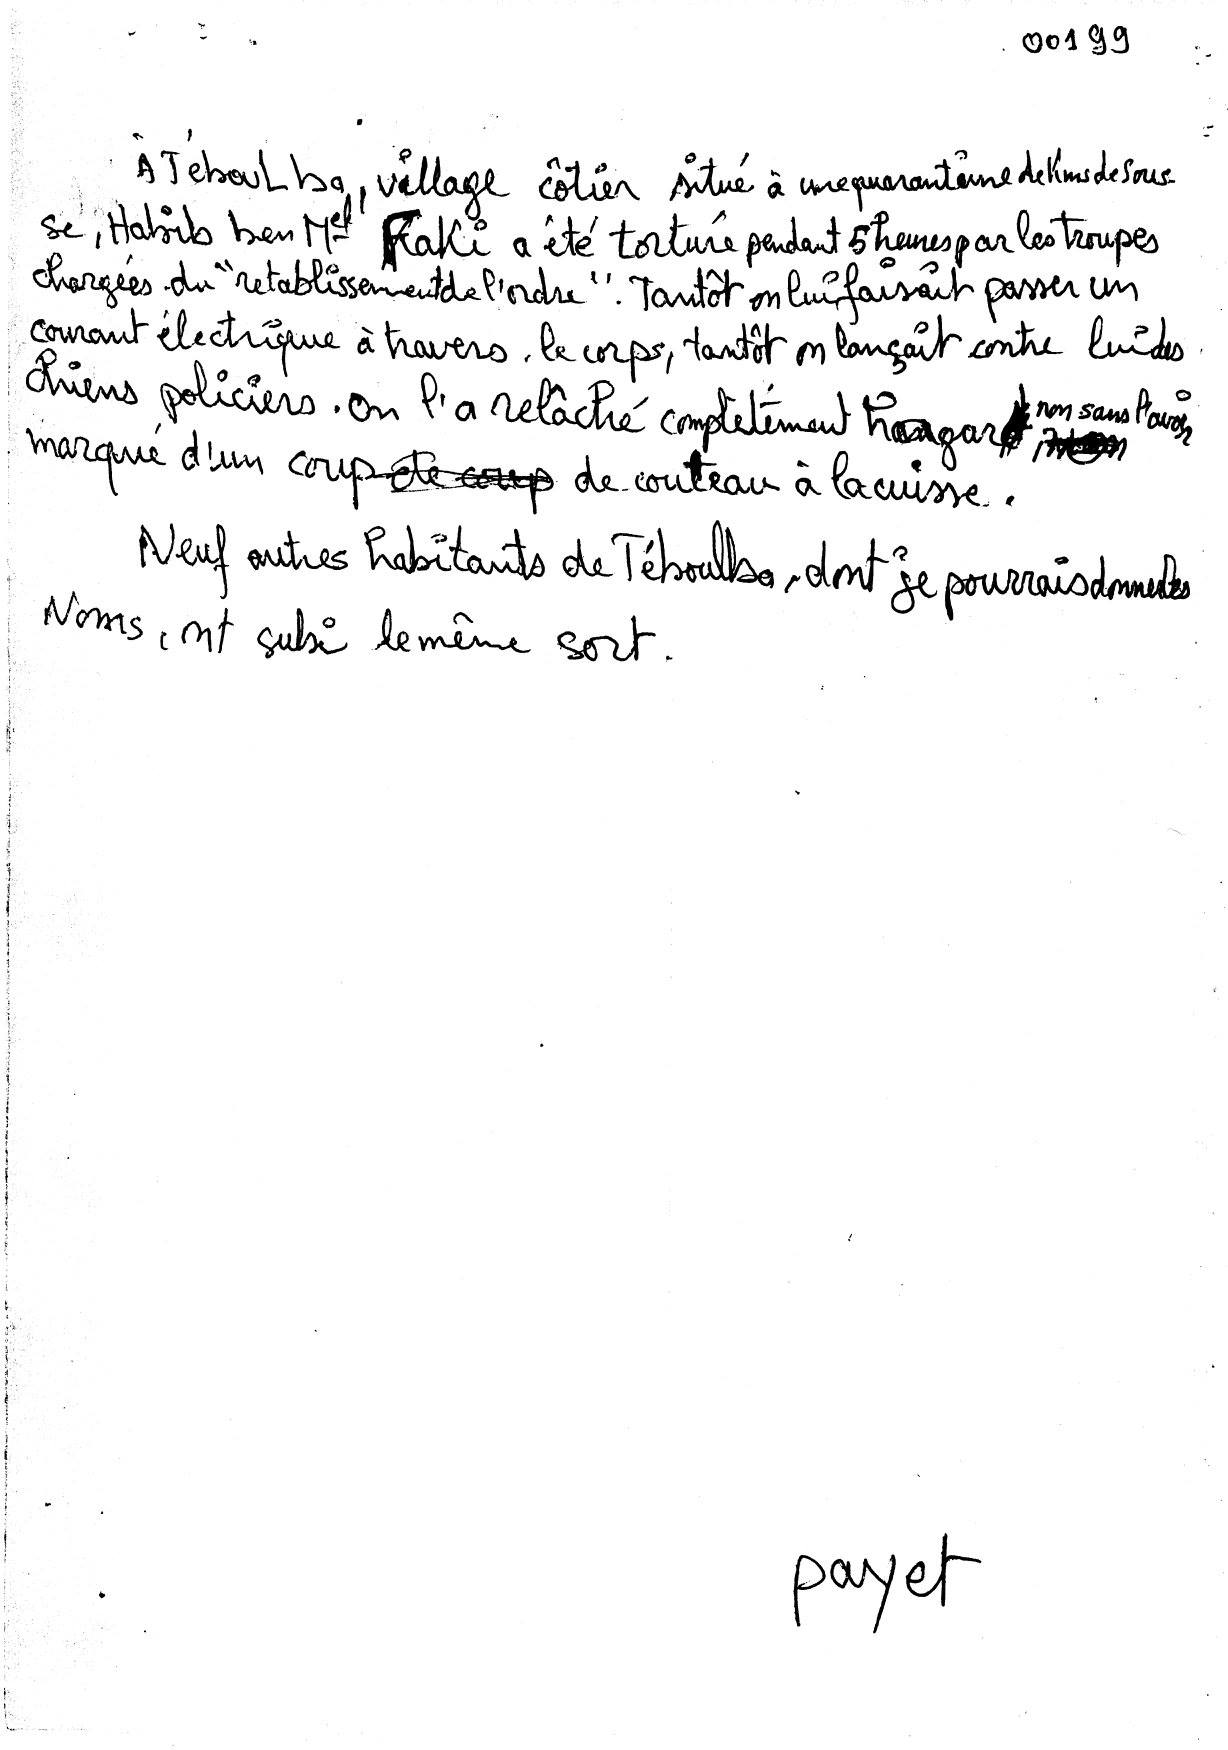 00199
À Téboulba, village côtier situé à une quarantaine de kms de Sous-
se, Habib ben Med Zaki a été torturé pendant 5 heures par les troupes
chargées du "retablissement de l'ordre". Tantôt on lui faisait passer un
courant électrique à travers le corps, tantôt on lançait contre lui des
chiens policiers. On l'a relâché complètement hagard non sans l'avoir
marqué d'un coup de couteau à la cuisse.
Neuf autres habitants de Téboulba, dont je pourrais donner les
Noms, ont subi le même sort.
payet